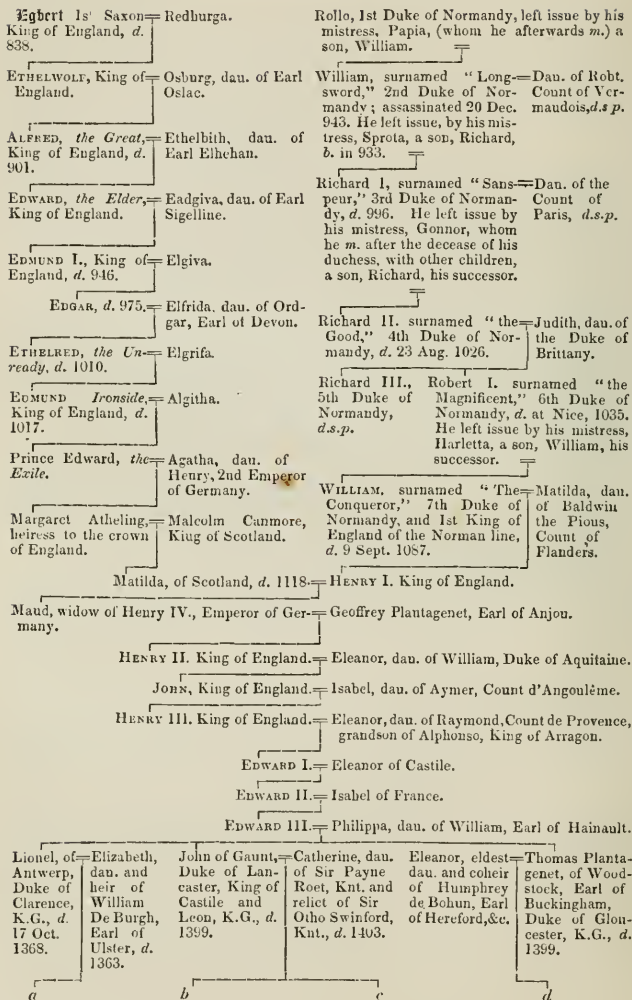 Egbert Is' Saxon
King of England, d.
838.
Redburga.
ETHELWOLF, King of
England.
Osburg, dau. of Earl
Oslac.
ALFRED, the Great,
King of England, d.
901.
Ethelbith, dau. of
Earl Elhehan.
EDWARD, the Elder,
King of England.
Eadgiva, dau. of Earl
Sigelline.
EDMUND I., King of
England, d. 946.
Elgiva.
EDGAR, d. 975.
Elfrida, dau. of Ord-
gar, Earl of Devon.
ETHELRED, the Un-
ready, d. 1010.
Elgrifa.
EDMUND Ironside,
King of England, d.
1017.
Algitha.
Prince Edward, the
Exile.
Agatha, dau. of
Henry, 2nd Emperor
of Germany.
Margaret Atheling,
heiress to the crown
of England.
Malcolm Canmore,
King of Scotland.
Rollo, 1st Duke of Normandy, left issue by his
mistress, Papia, (whom he afterwards m.) a
son, William.
William, surnamed "Long-
sword," 2nd Duke of Nor-
mandy; assassinated 20 Dec.
943. He left issue, by his mis-
tress, Sprota, a son, Richard,
b. in 933.
Dau. of Robt.
Count of Ver-
maudois, d.s p.
Richard I, surnamed "Sans-
peur," 3rd Duke of Norman-
dy, d. 996. He left issue by
his mistress, Gonnor, whom
he m. after the decease of his
duchess, with other children,
a son, Richard, his successor.
Dau. of the
Count of
Paris, d.s.p.
Richard II. surnamed "the
Good," 4th Duke of Nor-
mandy, d. 23 Aug. 1026.
Judith, dau. of
the Duke of
Brittany.
Richard III.,
5th Duke of
Normandy,
d.s.p.
Robert I. surnamed "the
Magnificent," 6th Duke of
Normandy, d. at Nice, 1035.
He left issue by his mistress,
Harletta, a son, William, his
successor.
WILLIAM, surnamed "The
Conqueror," 7th Duke of
Normandy, and 1st King of
England of the Norman line,
d. 9 Sept. 1087.
Matilda, dau.
of Baldwin
the Pious,
Count of
Flanders.
Matilda, of Scotland, d. 1118. HENRY I. King of England.
Maud, widow of Henry IV., Emperor of Ger-
many.
Geoffrey Plantagenet, Earl of Anjou.
HENRY II. King of England. Eleanor, dau. of William, Duke of Aquitaine.
JOHN, King of England. Isabel, dau. of Aymer, Count d'Angoulême.
HENRY III. King of England. Eleanor, dau. of Raymond, Count de Provence,
grandson of Alphonso, King of Arragon.
EDWARD I. Eleanor of Castile.
EDWARD II. Isabel of France.
EDWARD III. Philippa, dau. of William, Earl of Hainault.
Lionel, of
Antwerp,
Duke of
Clarence,
K.G., d.
17 Oct.
1368.
Elizabeth,
dau. and
heir of
William
De Burgh,
Earl of
Ulster, d.
1363.
John of Gaunt,
Duke of Lan-
caster, King of
Castile and
Leon, K.G., d.
1399.
Catherine, dau.
of Sir Payne
Roet, Knt. and
relict of Sir
Otho Swinford,
Knt., d. 1403.
Eleanor, eldest
dau. and coheir
of Humphrey
de Bohun, Earl
of Hereford, &c.
Thomas Planta-
genet, of Wood-
stock, Earl of
Buckingham,
Duke of Glou-
cester, K.G., d.
1399.
a b c d